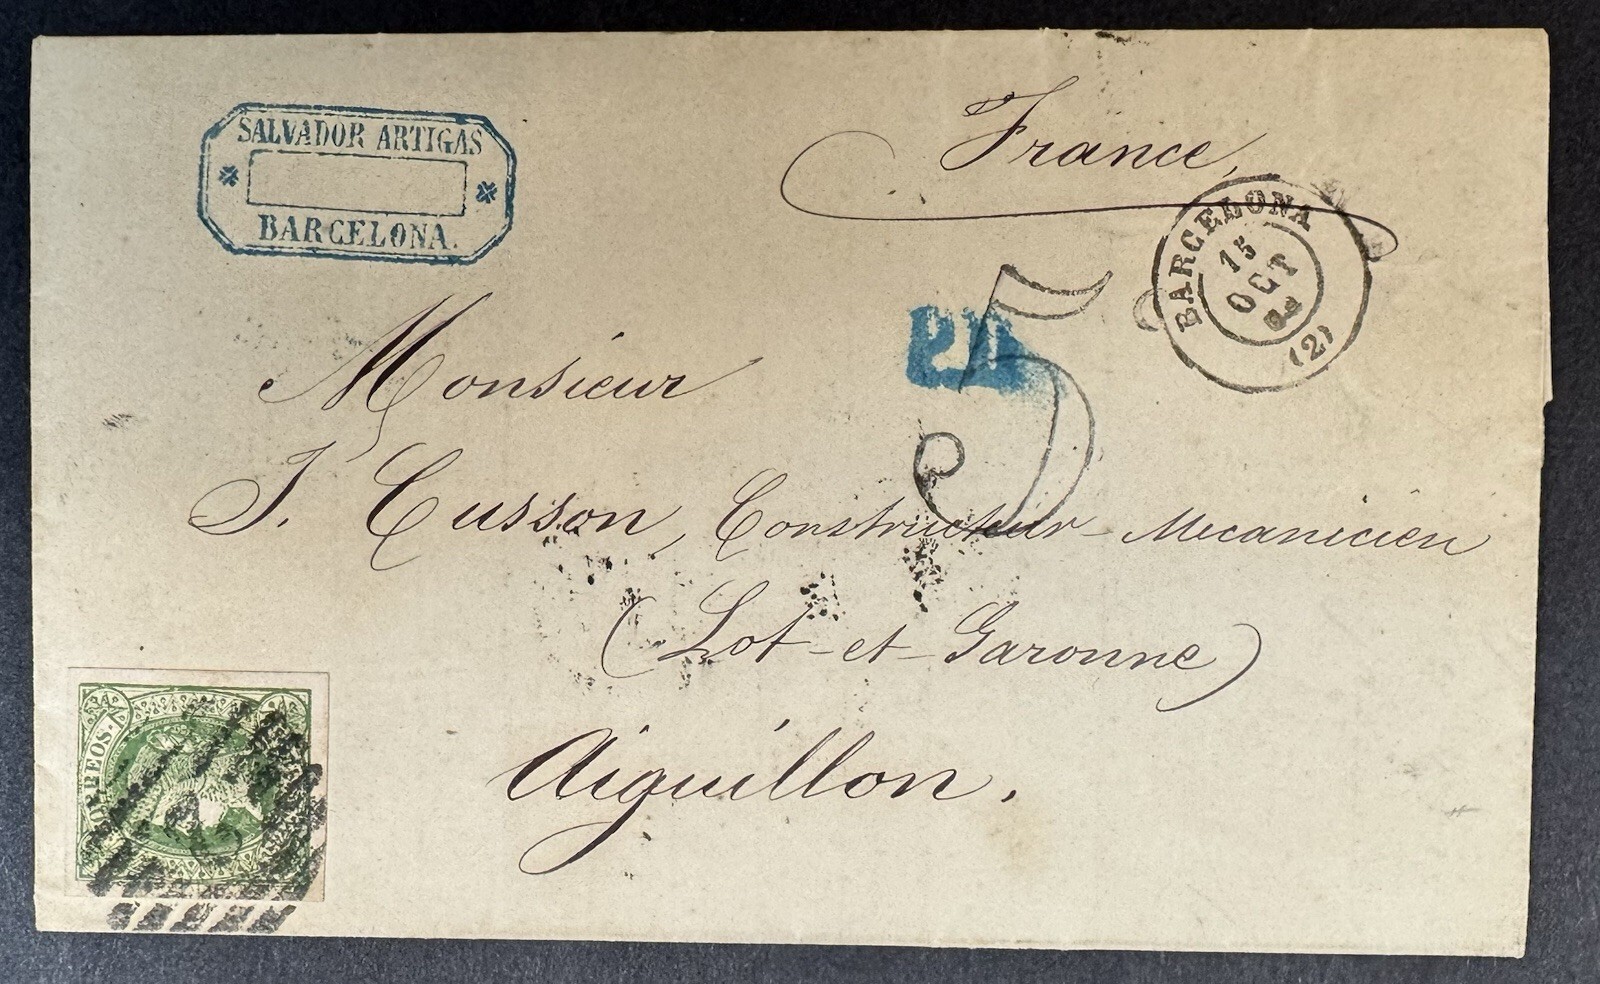 SALVADOR ARTIGAS
BARCELONA.
France,
BARCELONA
15
OCT
(2)
P.D
5
Monsieur
J. Cusson, Constructeur-Mecanicien
(Lot-et-Garonne)
Aiguillon.
CORREOS.
2